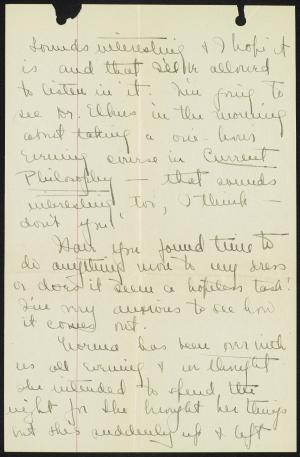 sounds interesting & I hope it
is and that I'll be allowed
to listen in it. I'm going to
see Dr. Elkins in the morning
about taking a one-hour
evening course in Current
Philosophy — that sounds
interesting too, I think —
don't you?
Have you found time to
do anything more to my dress
or does it seem a hopeless task?
I'm very anxious to see how
it comes out.
Norma has been over with
us all evening & we thought
she intended to spend the
night for she brought her things
but she suddenly up & left